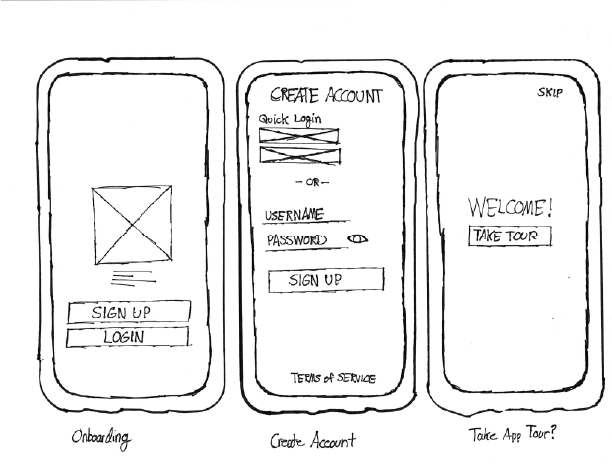 SIGN UP
LOGIN
Onboarding
CREATE ACCOUNT
Quick Login
- OR -
USERNAME
PASSWORD
SIGN UP
TERMS OF SERVICE
Create Account
SKIP
WELCOME!
TAKE TOUR
Take App Tour?